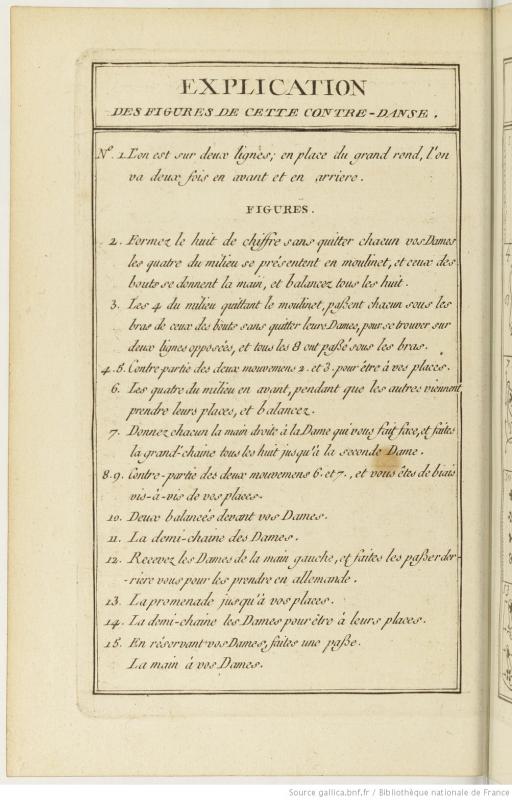 EXPLICATION
DES FIGURES DE CETTE CONTRE-DANSE.
N.º 1. L'on est sur deux lignes; en place du grand rond, l'on
va deux fois en avant et en arriere.
FIGURES.
2. Formez le huit de chiffre sans quitter chacun vos Dames
les quatre du milieu se présentent en moulinet, et ceux des
bouts se donnent la main, et balancez tous les huit.
3. Les 4 du milieu quittant le moulinet, paßent chacun sous les
bras de ceux des bouts sans quitter leurs Dames, pour se trouver sur
deux lignes opposées, et tous les 8 ont paßé sous les bras.
4.5. Contre-partie des deux mouvemens 2. et 3. pour être à vos places.
6. Les quatre du milieu en avant, pendant que les autres viennent
prendre leurs places, et balancez.
7. Donnez chacun la main droite à la Dame qui vous fait face, et faites
la grand-chaine tous les huit jusqu'à la seconde Dame.
8.9. Contre-partie des deux mouvemens 6. et 7., et vous êtes de biais
vis-à-vis de vos places.
10. Deux balancés devant vos Dames.
11. La demi-chaine des Dames.
12. Recevez les Dames de la main gauche, et faites les paßer der-
-riere vous pour les prendre en allemande.
13. La promenade jusqu'à vos places.
14. La demi-chaine les Dames pour être à leurs places.
15. En réservant vos Dames, faites une paße.
La main à vos Dames.
Source gallica.bnf.fr / Bibliothèque nationale de France